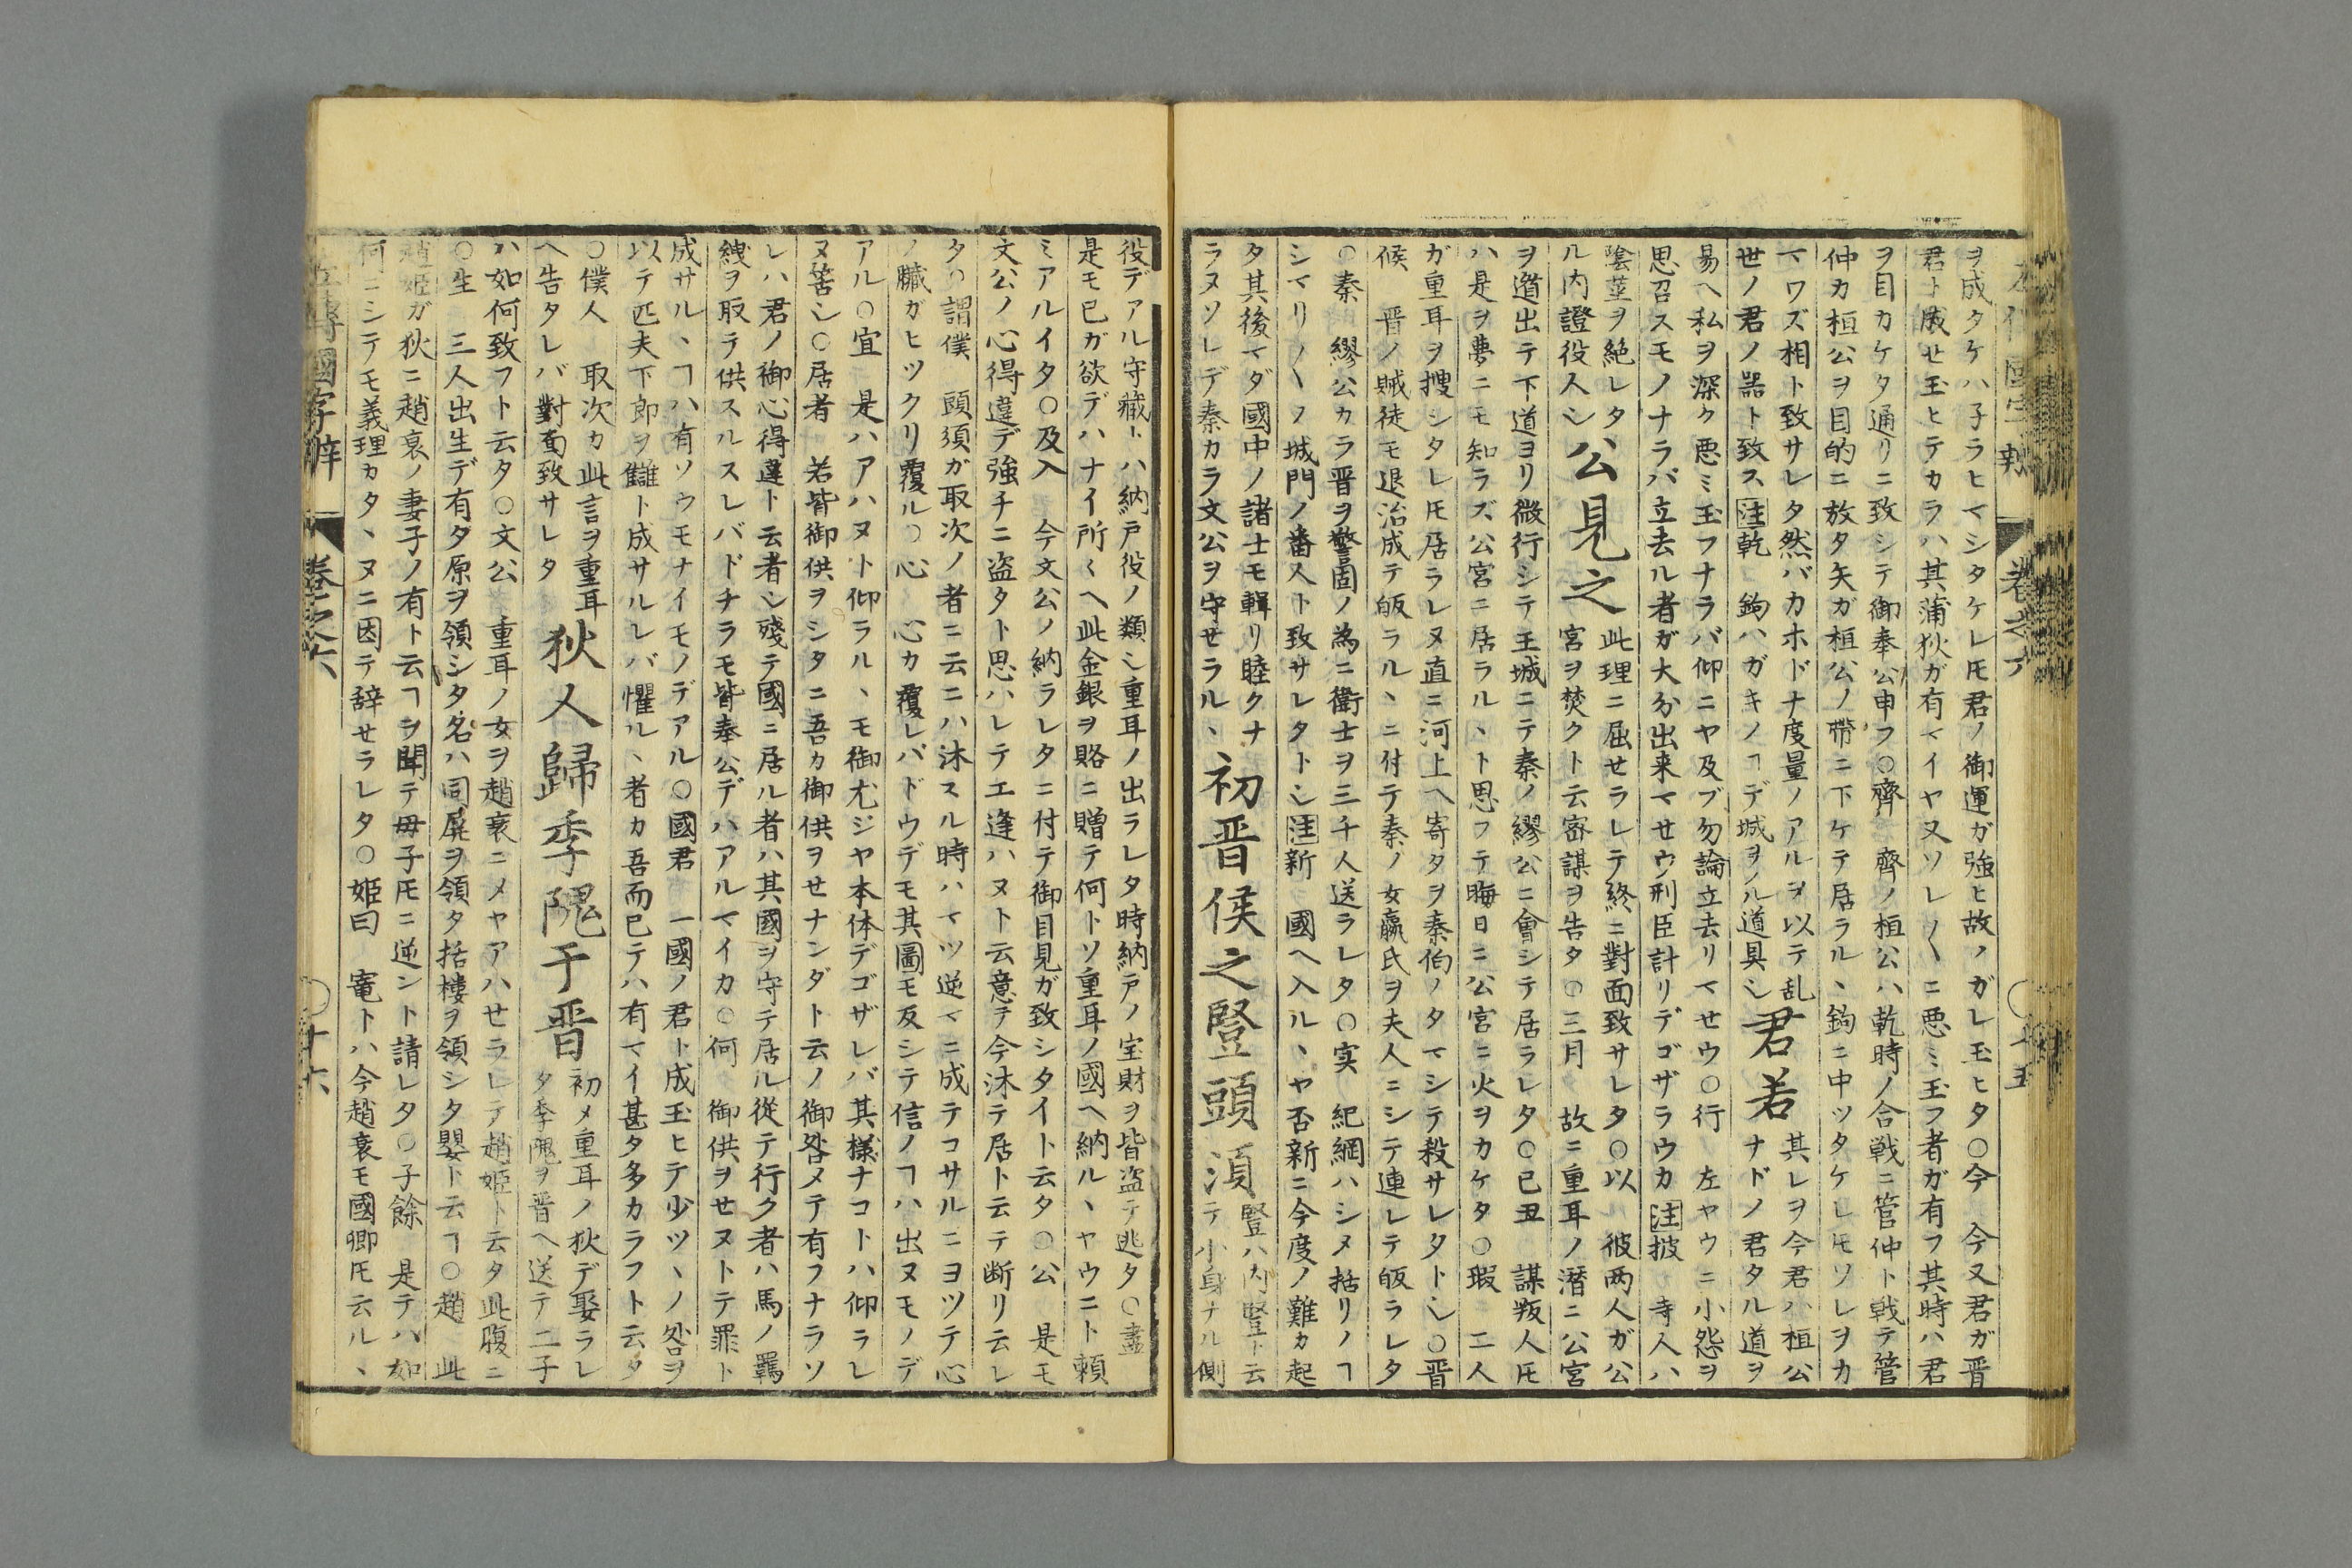 ヲ成タケハ子ラヒマシタケレ𪜈君ノ御運ガ強ヒ故ノガレ玉ヒタ○今　今又君ガ晋
君ト成せ玉ヒテカラハ其蒲狄ガ有マイヤ又ソレ〱ニ悪ミ玉フ者ガ有フ其時ハ君
ヲ目カケタ通リニ致シテ御奉公申フ○齊　齊ノ桓公ハ乾時ノ合戦ニ管仲ト戦テ管
仲カ桓公ヲ目的ニ放タ矢ガ桓公ノ帶ニ下ケテ居ラル、鉤ニ中ツタケレ𪜈ソレヲカ
マワズ相ト致サレタ然バカホドナ度量ノアルヲ以テ乱
世ノ君ノ器ト致ス注乾　鉤ハガキノヿデ城ヲノル道具シ
君若
其レヲ今君ハ桓公
ナドノ君タル道ヲ
易ヘ私ヲ深ク悪ミ玉フナラバ仰ニヤ及ブ勿論立去リマせウ○行　左ヤウニ小怨ヲ
思召スモノナラバ立去ル者ガ大分出来マせウ刑臣計リデゴザラウカ注披　寺人ハ
陰莖ヲ絶レタ
ル内證役人シ
公見之
此理ニ屈せラレテ終ニ對面致サレタ○以　彼両人ガ公
宮ヲ焚クト云密謀ヲ告タ○三月　故ニ重耳ノ潜ニ公宮
ヲ遁出テ下道ヨリ微行シテ王城ニテ秦ノ繆公ニ會シテ居ラレタ○已丑　謀叛人𪜈
ハ是ヲ夢ニモ知ラズ公宮ニ居ラル、ト思フテ晦日ニ公宮ニ火ヲカケタ○瑕　二人
ガ重耳ヲ捜シタレ𪜈居ラレヌ直ニ河上ヘ寄タヲ秦伯ノタマシテ殺サレタトシ○晋
侯　晋ノ賊徒モ退治成テ皈ラル、ニ付テ秦ノ女嬴氏ヲ夫人ニシテ連レテ皈ラレタ
○秦　繆公カラ晋ヲ警固ノ為ニ衛士ヲ三千人送ラレタ○実　紀綱ハシメ括リノヿ
シマリ〱ノ城門ノ番人ト致サレタトシ注新　國ヘ入ル、ヤ否新ニ今度ノ難カ起
タ其後マダ國中ノ諸士モ輯リ睦クナ
ラヌソレデ秦カラ文公ヲ守せラル、
初晋侯之豎頭須
豎ハ内豎ト云
テ小身ナル側
役デアル守藏ハ納戸役ノ類シ重耳ノ出ラレタ時納戸ノ宝財ヲ皆盗テ逃タ○盡
是モ已ガ欲デハナイ所〱ヘ此金銀ヲ賂ニ贈テ何トソ重耳ノ國ヘ納ル、ヤウニト頼
ミアルイタ○及入　今文公ノ納ラレタニ付テ御目見ガ致シタイト云タ○公　是モ
文公ノ心得違デ強チニ盗タト思ハレテエ逢ハヌト云意テ今沐テ居ト云テ断リ云レ
タ○謂僕　頭須ガ取次ノ者ニ云ニハ沐スル時ハマツ逆マニ成テコサルニヨツテ心
ノ臓ガヒツクリ覆ル○心　心カ覆レバドウデモ其圖モ反シテ信ノヿハ出ヌモノデ
アル○宜　是ハアハヌト仰ラル、モ御尤ジヤ本体デゴザレバ其様ナコトハ仰ラレ
ヌ筈シ○居者　若皆御供ヲシタニ吾カ御供ヲせナンダト云ノ御咎メテ有フナラソ
レハ君ノ御心得違ト云者シ殘テ國ニ居ル者ハ其國ヲ守テ居ル従テ行ク者ハ馬ノ羈
絏ヲ取テ供スルスレバドチラモ皆奉公デハアルマイカ○何　御供ヲせヌトテ罪ト
成サル、ヿハ有ソウモナイモノデアル○國君　一國ノ君ト成玉ヒテ少ツ、ノ咎ヲ
以テ匹夫下郎ヲ讎ト成サルレバ懼ル、者カ吾而已テハ有マイ甚タ多カラフト云タ
○僕人　取次カ此言ヲ重耳
ヘ告タレバ對面致サレタ
狄人歸季隗于晋
初メ重耳ノ狄デ娶ラレ
タ季隗ヲ晋ヘ送テ二子
ハ如何致フト云タ○文公　重耳ノ女ヲ趙衰ニメヤアハせラレテ趙姫ト云タ此腹ニ
○生　三人出生デ有タ原ヲ領シタ名ハ同屏ヲ領タ括樓ヲ領シタ嬰ト云ヿ○趙　此
趙姫ガ狄ニ趙衰ノ妻子ノ有ト云ヿヲ聞テ母子𪜈ニ逆ント請レタ○子餘　是テハ如
何ニシテモ義理カタ、ヌニ因テ辞せラレタ○姫曰　寵トハ今趙衰モ國卿𪜈云ル、
左傳國字辯　巻之六　○十六